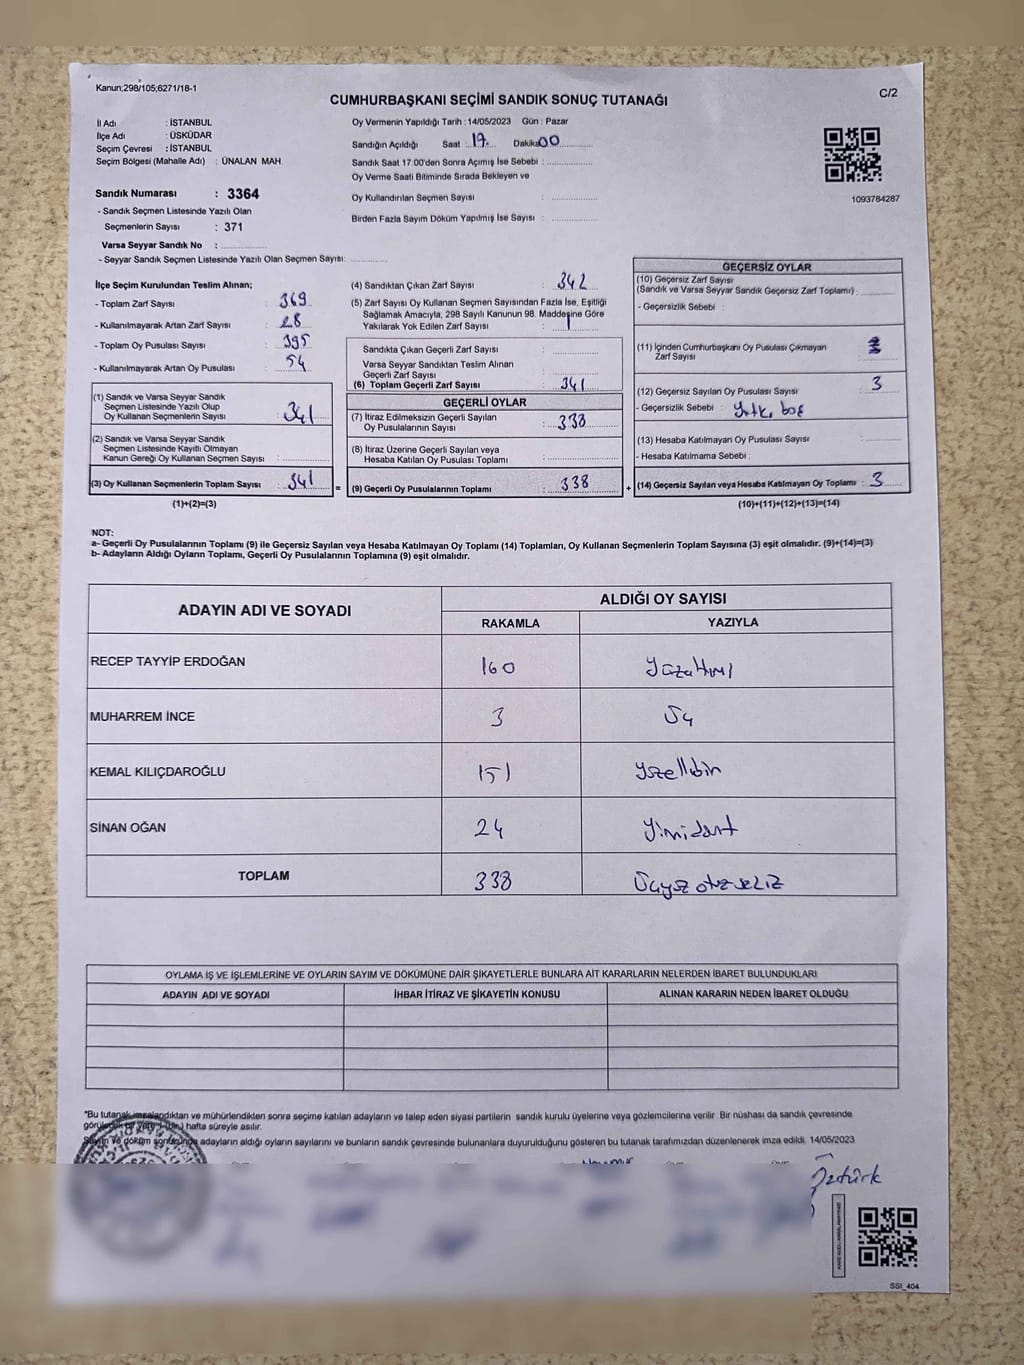 Kanun;298/105,6271/18-1
C/2
CUMHURBAŞKANI SEÇİMİ SANDIK SONUÇ TUTANAĞI
İl Adı : İSTANBUL
İlçe Adı : ÜSKÜDAR
Seçim Çevresi : İSTANBUL
Seçim Bölgesi (Mahalle Adı) : ÜNALAN MAH.
Sandık Numarası : 3364
- Sandık Seçmen Listesinde Yazılı Olan
Seçmenlerin Sayısı : 371
Varsa Seyyar Sandık No :
- Seyyar Sandık Seçmen Listesinde Yazılı Olan Seçmen Sayısı:
Oy Vermenin Yapıldığı Tarih : 14/05/2023 Gün : Pazar
Sandığın Açıldığı Saat : 17. Dakika 00
Sandık Saat 17.00'den Sonra Açımış İse Sebebi :
Oy Verme Saati Bitiminde Sırada Bekleyen ve
Oy Kullandırılan Seçmen Sayısı :
Birden Fazla Sayım Döküm Yapılmış İse Sayısı :
1093784287
İlçe Seçim Kurulundan Teslim Alınan;
- Toplam Zarf Sayısı : 369
- Kullanılmayarak Artan Zarf Sayısı : 28
- Toplam Oy Pusulası Sayısı : 395
- Kullanılmayarak Artan Oy Pusulası : 54
(1) Sandık ve Varsa Seyyar Sandık
Seçmen Listesinde Yazılı Olup
Oy Kullanan Seçmenlerin Sayısı : 341
(2) Sandık ve Varsa Seyyar Sandık
Seçmen Listesinde Kayıtlı Olmayan
Kanun Gereği Oy Kullanan Seçmen Sayısı :
(3) Oy Kullanan Seçmenlerin Toplam Sayısı : 341 =
(1)+(2)=(3)
(4) Sandıktan Çıkan Zarf Sayısı : 342
(5) Zarf Sayısı Oy Kullanan Seçmen Sayısından Fazla İse, Eşitliği
Sağlamak Amacıyla; 298 Sayılı Kanunun 98. Maddesine Göre
Yakılarak Yok Edilen Zarf Sayısı : 1
Sandıkta Çıkan Geçerli Zarf Sayısı :
Varsa Seyyar Sandıktan Teslim Alınan
Geçerli Zarf Sayısı :
(6) Toplam Geçerli Zarf Sayısı : 341
GEÇERLİ OYLAR
(7) İtiraz Edilmeksizin Geçerli Sayılan
Oy Pusulalarının Sayısı : 338
(8) İtiraz Üzerine Geçerli Sayılan veya
Hesaba Katılan Oy Pusulası Toplamı :
(9) Geçerli Oy Pusulalarının Toplamı : 338 +
GEÇERSİZ OYLAR
(10) Geçersiz Zarf Sayısı
(Sandık ve Varsa Seyyar Sandık Geçersiz Zarf Toplamı) :
- Geçersizlik Sebebi :
(11) İçinden Cumhurbaşkanı Oy Pusulası Çıkmayan
Zarf Sayısı :
(12) Geçersiz Sayılan Oy Pusulası Sayısı : 3
- Geçersizlik Sebebi :
(13) Hesaba Katılmayan Oy Pusulası Sayısı :
- Hesaba Katılmama Sebebi :
(14) Geçersiz Sayılan veya Hesaba Katılmayan Oy Toplamı : 3
(10)+(11)+(12)+(13)=(14)
NOT:
a- Geçerli Oy Pusulalarının Toplamı (9) ile Geçersiz Sayılan veya Hesaba Katılmayan Oy Toplamı (14) Toplamları, Oy Kullanan Seçmenlerin Toplam Sayısına (3) eşit olmalıdır. (9)+(14)=(3)
b- Adayların Aldığı Oyların Toplamı, Geçerli Oy Pusulalarının Toplamına (9) eşit olmalıdır.
ADAYIN ADI VE SOYADI
ALDIĞI OY SAYISI
RAKAMLA YAZIYLA
RECEP TAYYİP ERDOĞAN 160 Yüzaltmış
MUHARREM İNCE 3 Üç
KEMAL KILIÇDAROĞLU 151 Yüzellibir
SİNAN OĞAN 24 Yirmidört
TOPLAM 338 Üçyüz otuz sekiz
OYLAMA İŞ VE İŞLEMLERİNE VE OYLARIN SAYIM VE DÖKÜMÜNE DAİR ŞİKAYETLERLE BUNLARA AİT KARARLARIN NELERDEN İBARET BULUNDUKLARI
ADAYIN ADI VE SOYADI İHBAR İTİRAZ VE ŞİKAYETİN KONUSU ALINAN KARARIN NEDEN İBARET OLDUĞU
*Bu tutanak imzalandıktan ve mühürlendikten sonra seçime katılan adayların ve talep eden siyasi partilerin sandık kurulu üyelerine veya gözlemcilerine verilir. Bir nüshası da sandık çevresinde
görülecek bir yere 1 (bir) hafta süreyle asılır.
Sayım ve döküm sonucunda adayların aldığı oyların sayılarını ve bunların sandık çevresinde bulunanlara duyurulduğunu gösteren bu tutanak tarafımızdan düzenlenerek imza edildi. 14/05/2023
Öztürk
SSI_404